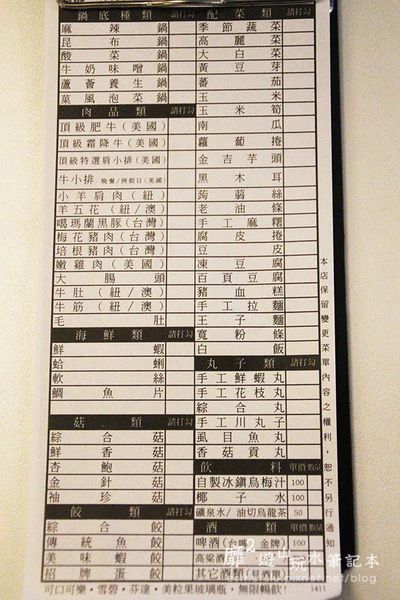 鍋底種類 請打勾
麻辣鍋
昆布鍋
酸菜鍋
牛奶味噌鍋
蘆薈養生鍋
菓風泡菜鍋
肉品類 請打勾
頂級肥牛(美國)
頂級霜降牛(美國)
頂級特選肩小排(美國)
牛小排 晚餐/例假日(美國)
小羊肩肉(紐)
羊五花(紐/澳)
噶瑪蘭黑豚(台灣)
梅花豬肉(台灣)
培根豬肉(台灣)
嫩雞肉(美國)
大腸頭
牛肚(紐/澳)
牛筋(紐/澳)
毛肚
海鮮類 請打勾
鮮蝦
蛤蜊
軟絲
鯛魚片
菇類 請打勾
綜合菇
鮮香菇
杏鮑菇
金針菇
袖珍菇
餃類 請打勾
綜合餃
傳統魚餃
美味蝦餃
招牌蛋餃
配菜類 請打勾
季節蔬菜
高麗菜
大豆芽
黃豆芽
蕃茄
玉米
玉米筍
南瓜
蘿蔔捲
金吉芋頭
黑木耳
蒟蒻絲
老油條
手工麻糬
腐皮捲
豆皮
凍豆腐
百頁豆腐
豬血糕
手工拉麵
王子麵
寬粉條
白飯
丸子類 請打勾
手工鮮蝦丸
手工花枝丸
綜合丸
手工川丸子
虱目魚丸
香菇貢丸
飲料 單價 數量
自製冰鎮烏梅汁 100
椰子水 100
礦泉水/油切烏龍茶 50
酒類 單價 數量
啤酒(台/金牌) 100
高粱酒
其它酒類(見酒單)
可口可樂・雪碧・芬達・美粒果玻璃瓶・無限暢飲!
1411
本店保留變更菜單內容之權利,恕不另行通知
遊山玩水筆記本